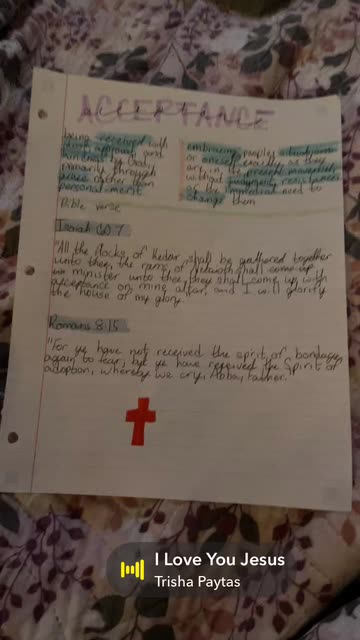 ACCEPTANCE
being received with
approval and
kindness by God,
primarily through
grace rather than
personal merit
embracing people, situations
or oneself exactly as they
are in the present moment,
without judgment, resistance
or the immediate need to
change them
Bible verse
Isaiah 60:7
"All the flocks of Kedar shall be gathered together
unto thee, the rams of shall come up
minister unto thee, they shall come up with
acceptance on mine altar, and I will glorify
the house of my glory.
Romans 8:15
"For ye have not received the spirit of bondage
again to fear, but ye have received the Spirit of
adoption, whereby we cry, Abba, Father.
I Love You Jesus
Trisha Paytas